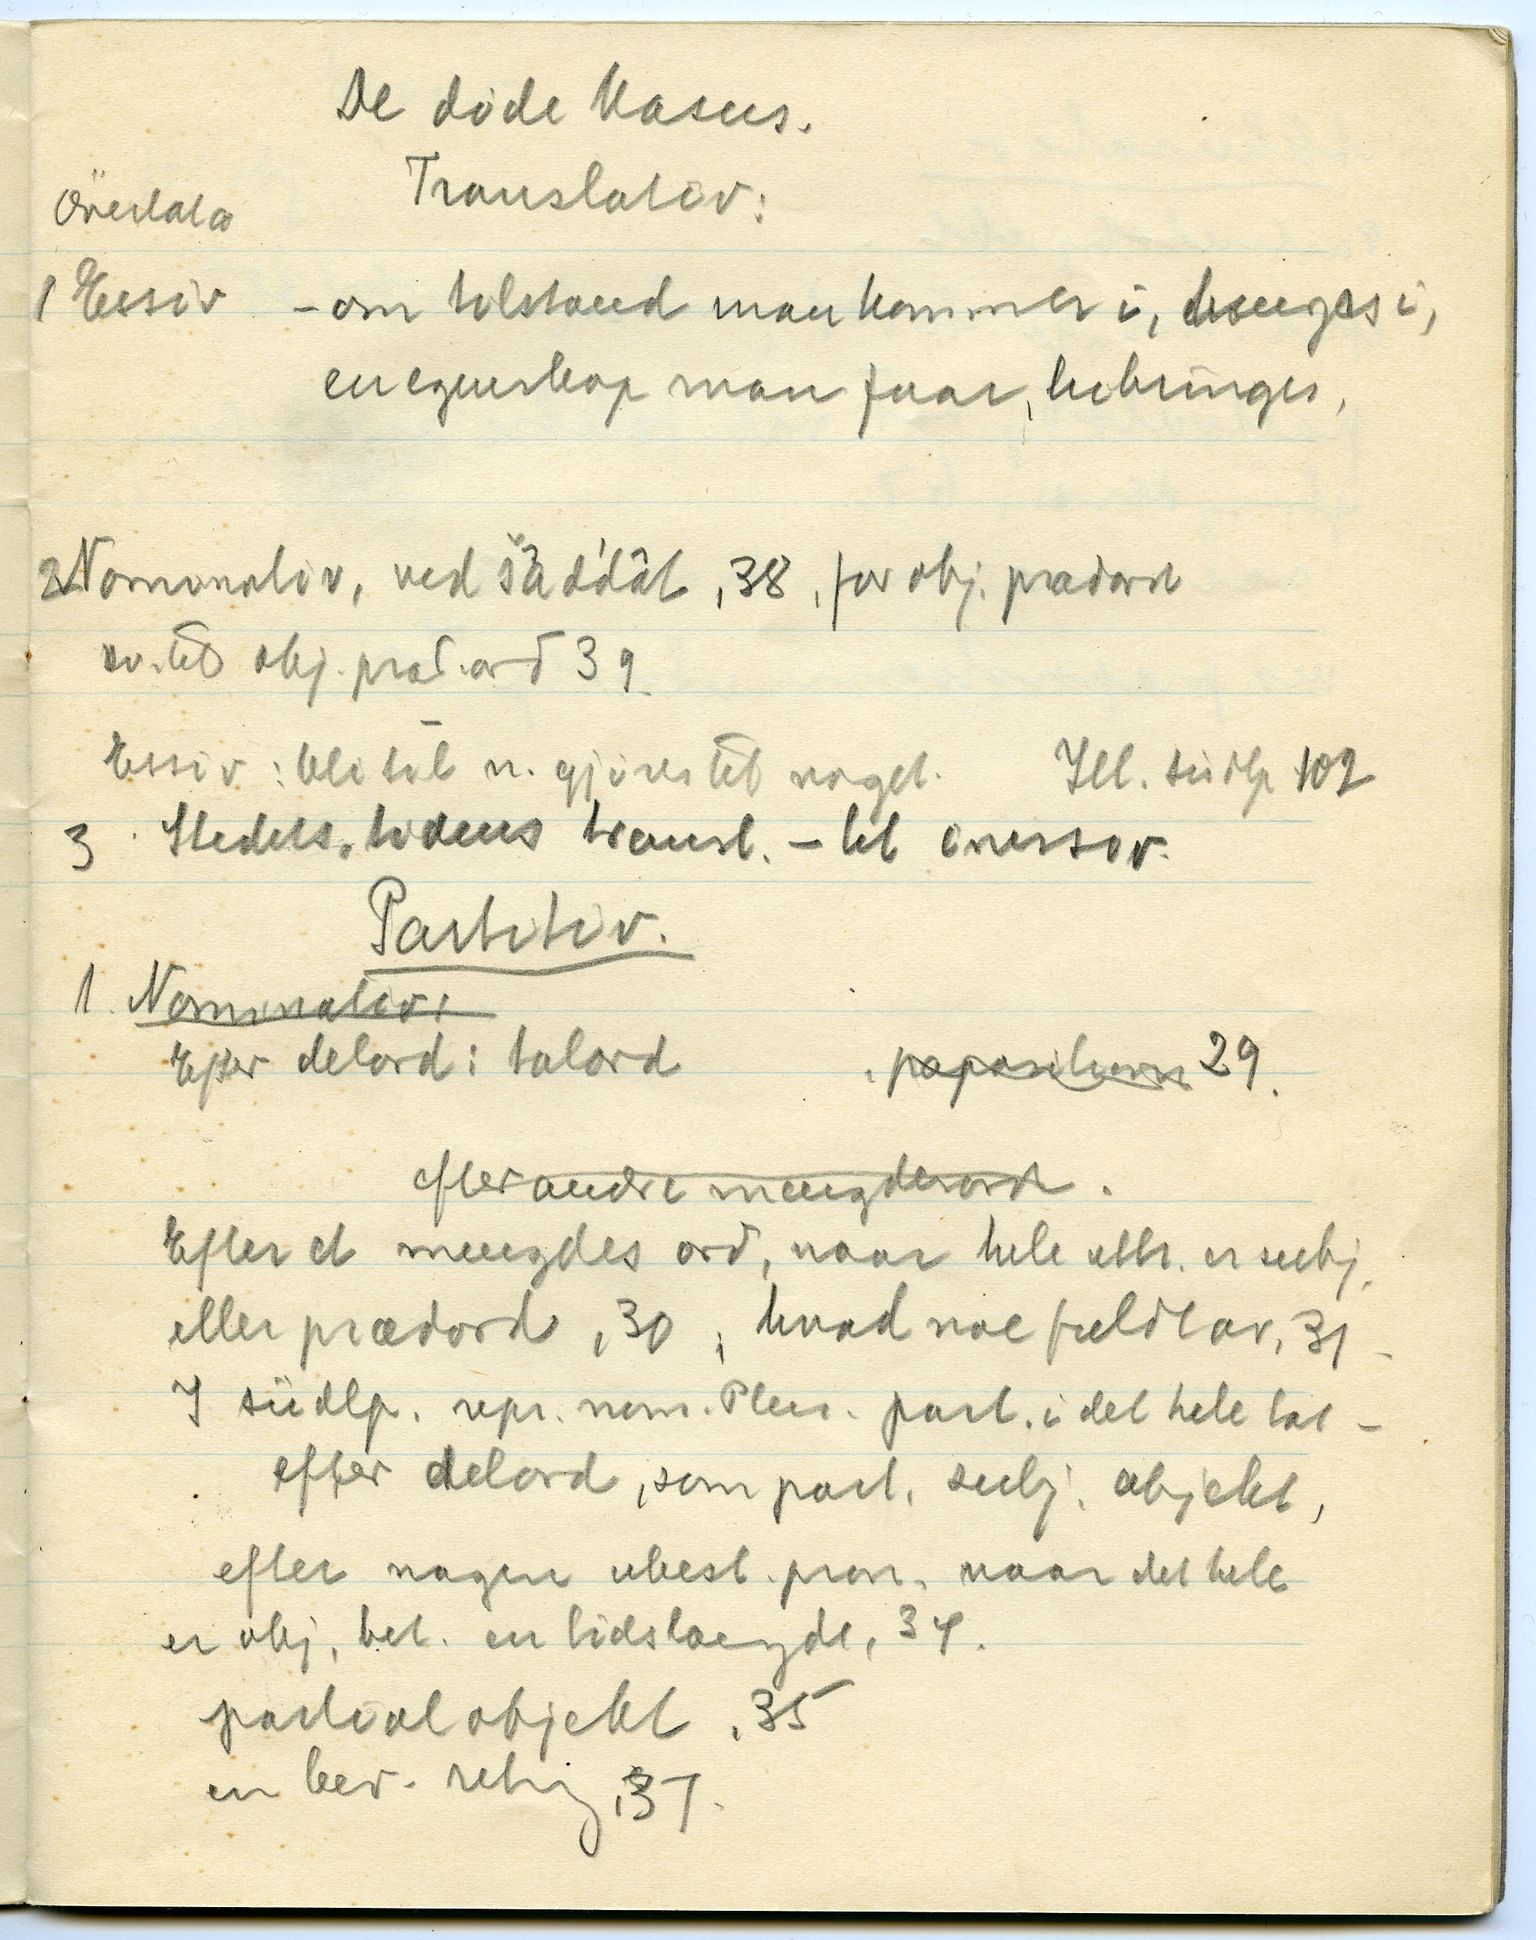 De døde Kasus.
Translativ:
Överlata
1 Essiv – om tilstand man kommer i, bringes i,
en egenskap man faar, bibringes,
2 Nominativ, ved šaddât, 38, for obj. prædord
til obj. præd.ord 39.
Essiv: bli til n. gjøres til noget. Ill. südlp 102
3 Stedets, tidens transl. – til inessiv.
Partitiv.
1. Nominativ:
Efter delord: talord 29.
efter andre mengdeord.
Efter et mengdes ord, naar hele uttr. er subj.
eller prædord, 30, hvad noe fuldt av, 31 –
I südlp. repr. nom. Plur. part. i det hele tat –
efter delord, som part. subj. objekt,
efter nogen ubest. pron. naar det hele
er obj, bet. en tidslængde, 34.
partialobjekt, 35
en bev. retng, 37.